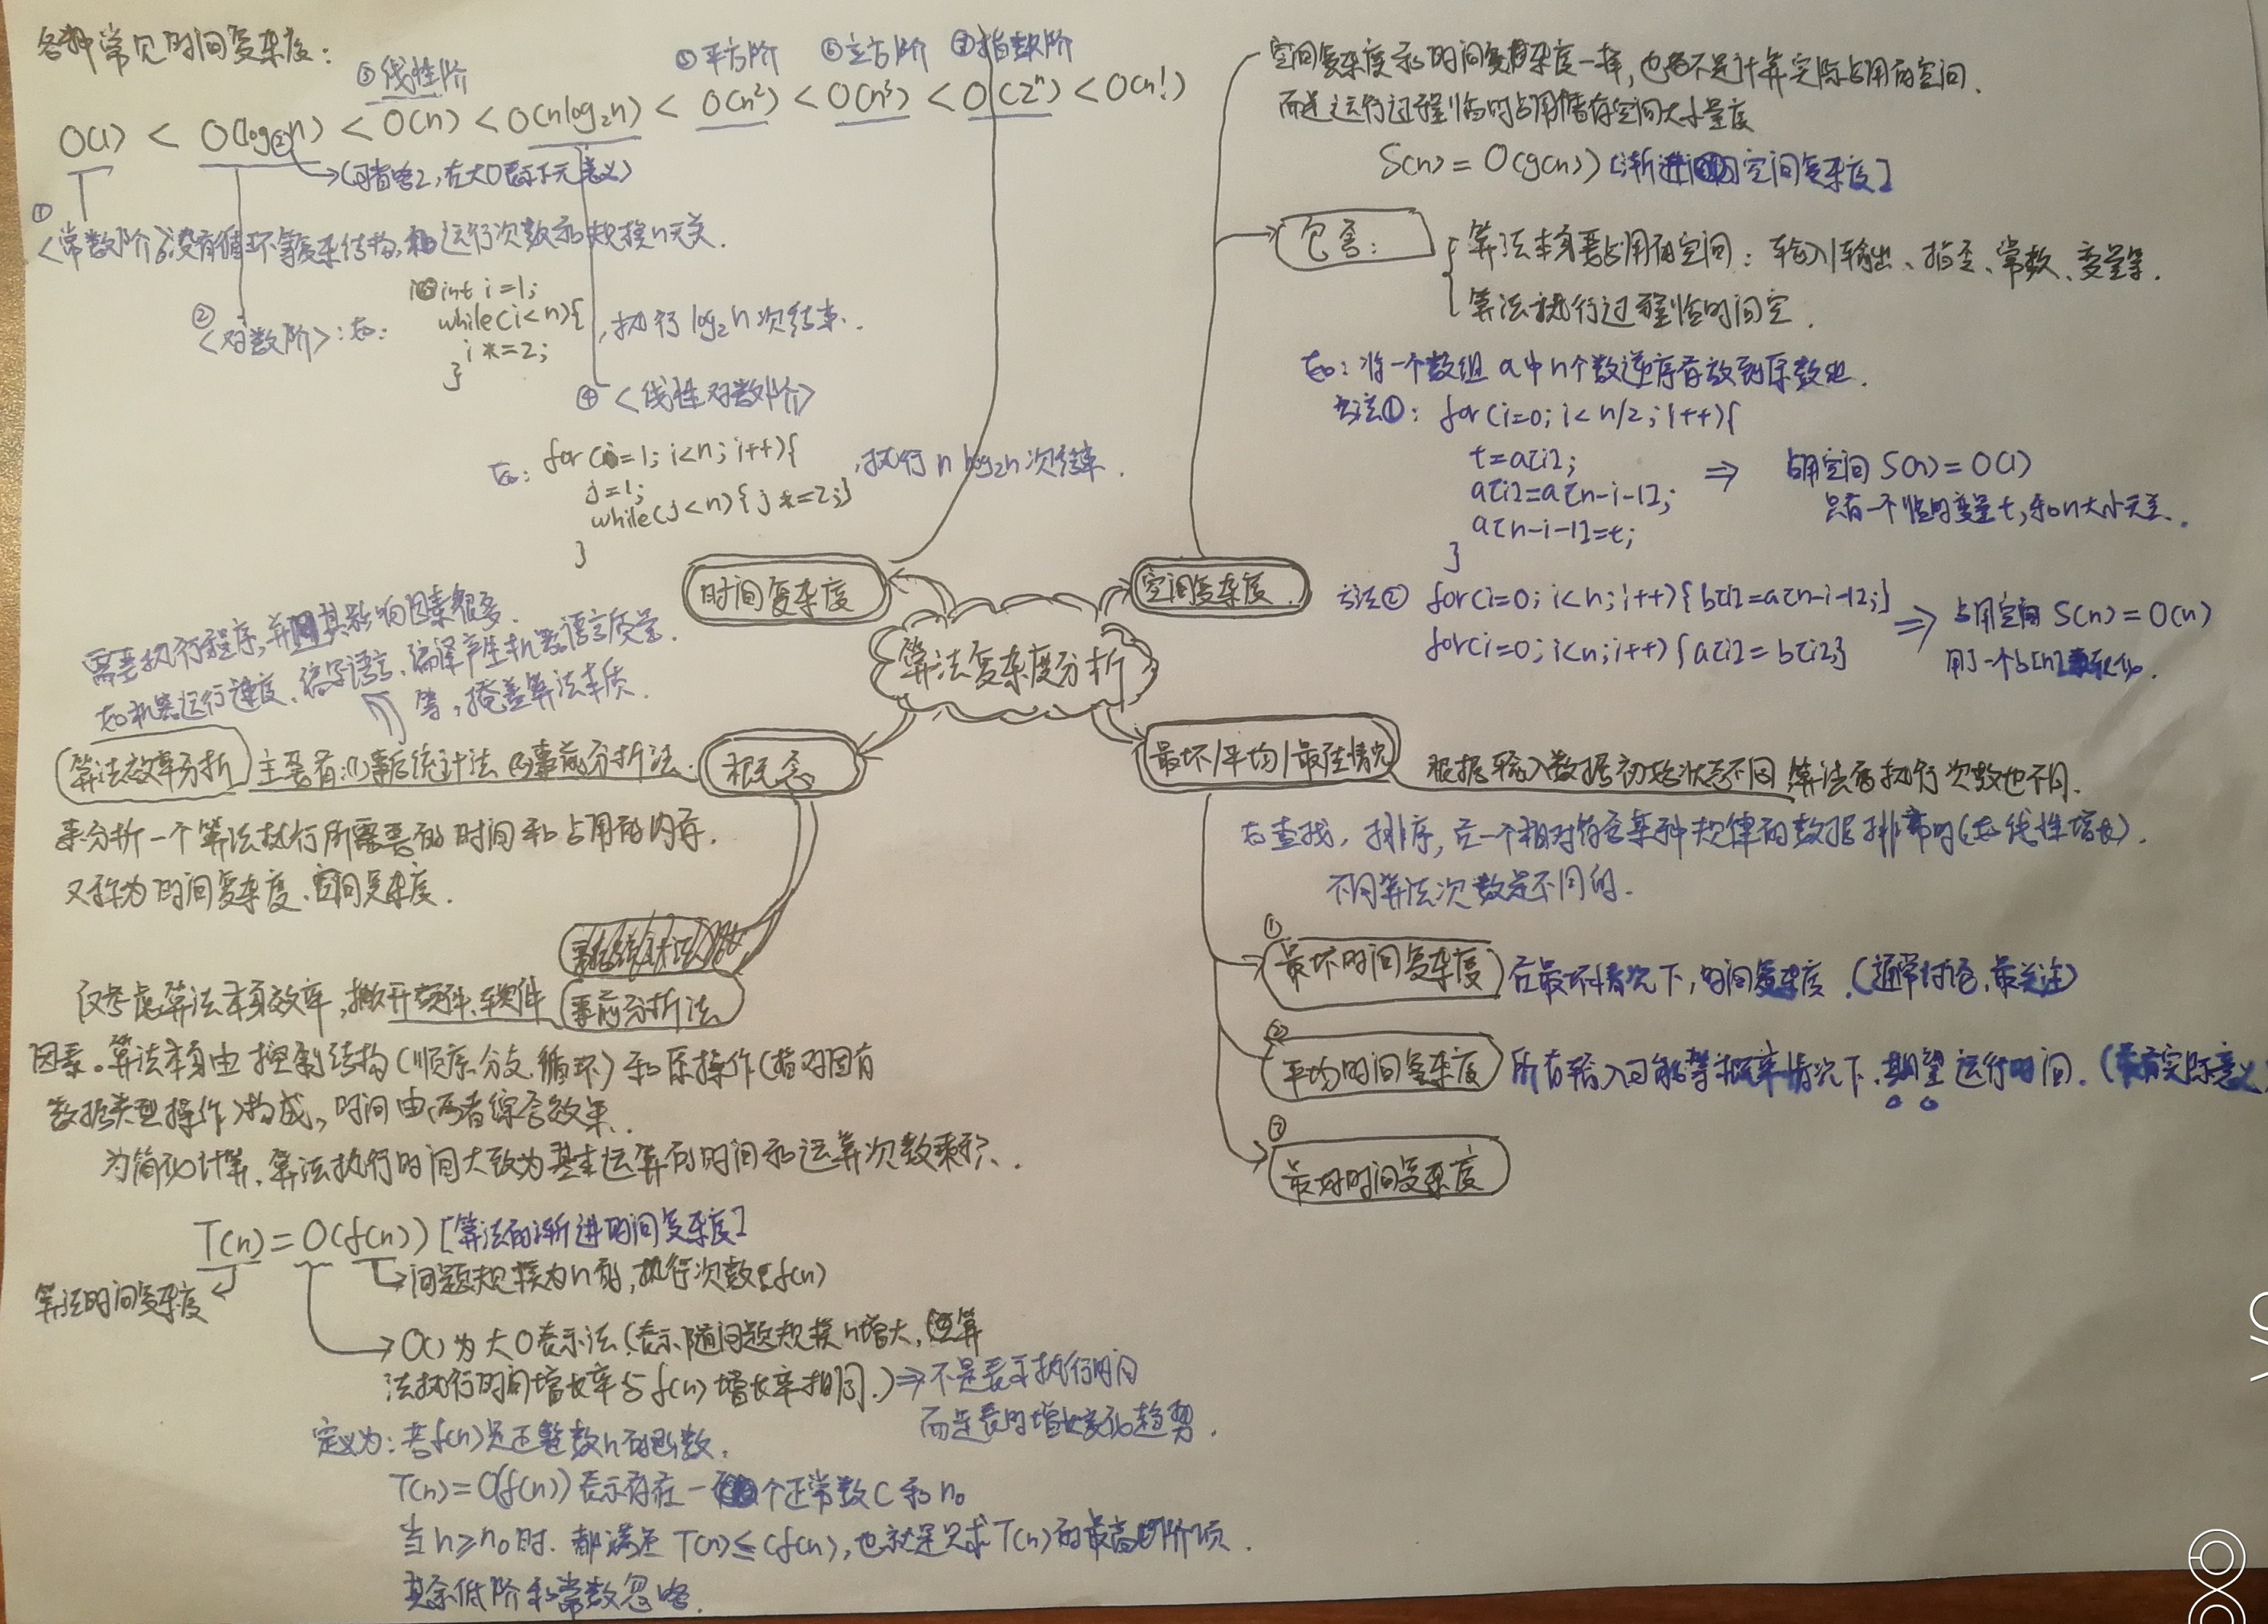 各种常见时间复杂度:
③线性阶 ⑤平方阶 ⑥立方阶 ⑦指数阶
O(1) < O(log②n) < O(n) < O(nlog₂n) < O(n²) < O(n³) < O(2ⁿ) < O(n!)
(可省略2,在大O表示下无意义)
①
<常数阶>:没有循环等复杂结构,运行次数和规模n无关.
②
<对数阶>:如:
int i=1;
while(i<n){
i*=2;
}
,执行log₂n次结束.
④ <线性对数阶>
如: for(i=1; i<n; i++){
j=1;
while(j<n){j*=2;}
}
,执行nlog₂n次结束.
时间复杂度
空间复杂度和时间复杂度一样,也不是计算实际占用的空间.
而是运行过程临时占用储存空间大小量度
S(n)=O(g(n)) [渐进空间复杂度]
包含:
算法本身要占用的空间:输入/输出、指令、常数、变量等.
算法执行过程临时间空.
如:将一个数组a中n个数逆序存放到原数组.
方法①: for(i=0; i<n/2; i++){
t=a[i];
a[i]=a[n-i-1];
a[n-i-1]=t;
}
⇒ 占用空间S(n)=O(1)
只有一个临时变量t,和n大小无关.
方法② for(i=0; i<n; i++){b[i]=a[n-i-1];}
for(i=0; i<n; i++){a[i]=b[i];}
⇒ 占用空间S(n)=O(n)
用了一个b[n]
空间复杂度
算法复杂度分析
需要执行程序,并且其影响因素很多.
如机器运行速度、编写语言、编译产生机器语言质量
等,掩盖算法本质.
算法效率分析 主要有:(1)事后统计法 (2)事前分析法.
概念
来分析一个算法执行所需要的时间和占用的内存.
又称为时间复杂度、空间复杂度.
仅考虑算法本身效率,撇开硬件、软件 事前分析法
因素。算法本身由控制结构(顺序、分支、循环)和原操作(指对固有
数据类型操作)构成,时间由两者综合效果.
为简化计算,算法执行时间大致为基本运算的时间和运算次数乘积.
T(n)=O(f(n)) [算法的渐进时间复杂度]
问题规模为n时,执行次数是f(n)
算法时间复杂度
O()为大O表示法(表示随问题规模n增大,算
法执行时间增长率与f(n)增长率相同.)⇒不是表示执行时间
而是表时增长变化趋势.
定义为:若f(n)是正整数n的函数,
T(n)=O(f(n))表示存在一个正常数C和n₀
当n≥n₀时.都满足T(n)≤Cf(n),也就是只求T(n)的最高阶项.
其余低阶和常数忽略.
最坏/平均/最佳情况
根据输入数据初始状态不同 算法的执行次数也不同.
如查找,排序,在一个相对符合某种规律的数据排布时(如线性增长).
不同算法次数是不同的.
①
最坏时间复杂度 在最坏情况下,时间复杂度.(通常讨论,最关注)
②
平均时间复杂度 所有输入可能等概率情况下,期望运行时间.(最有实际意义)
③
最好时间复杂度